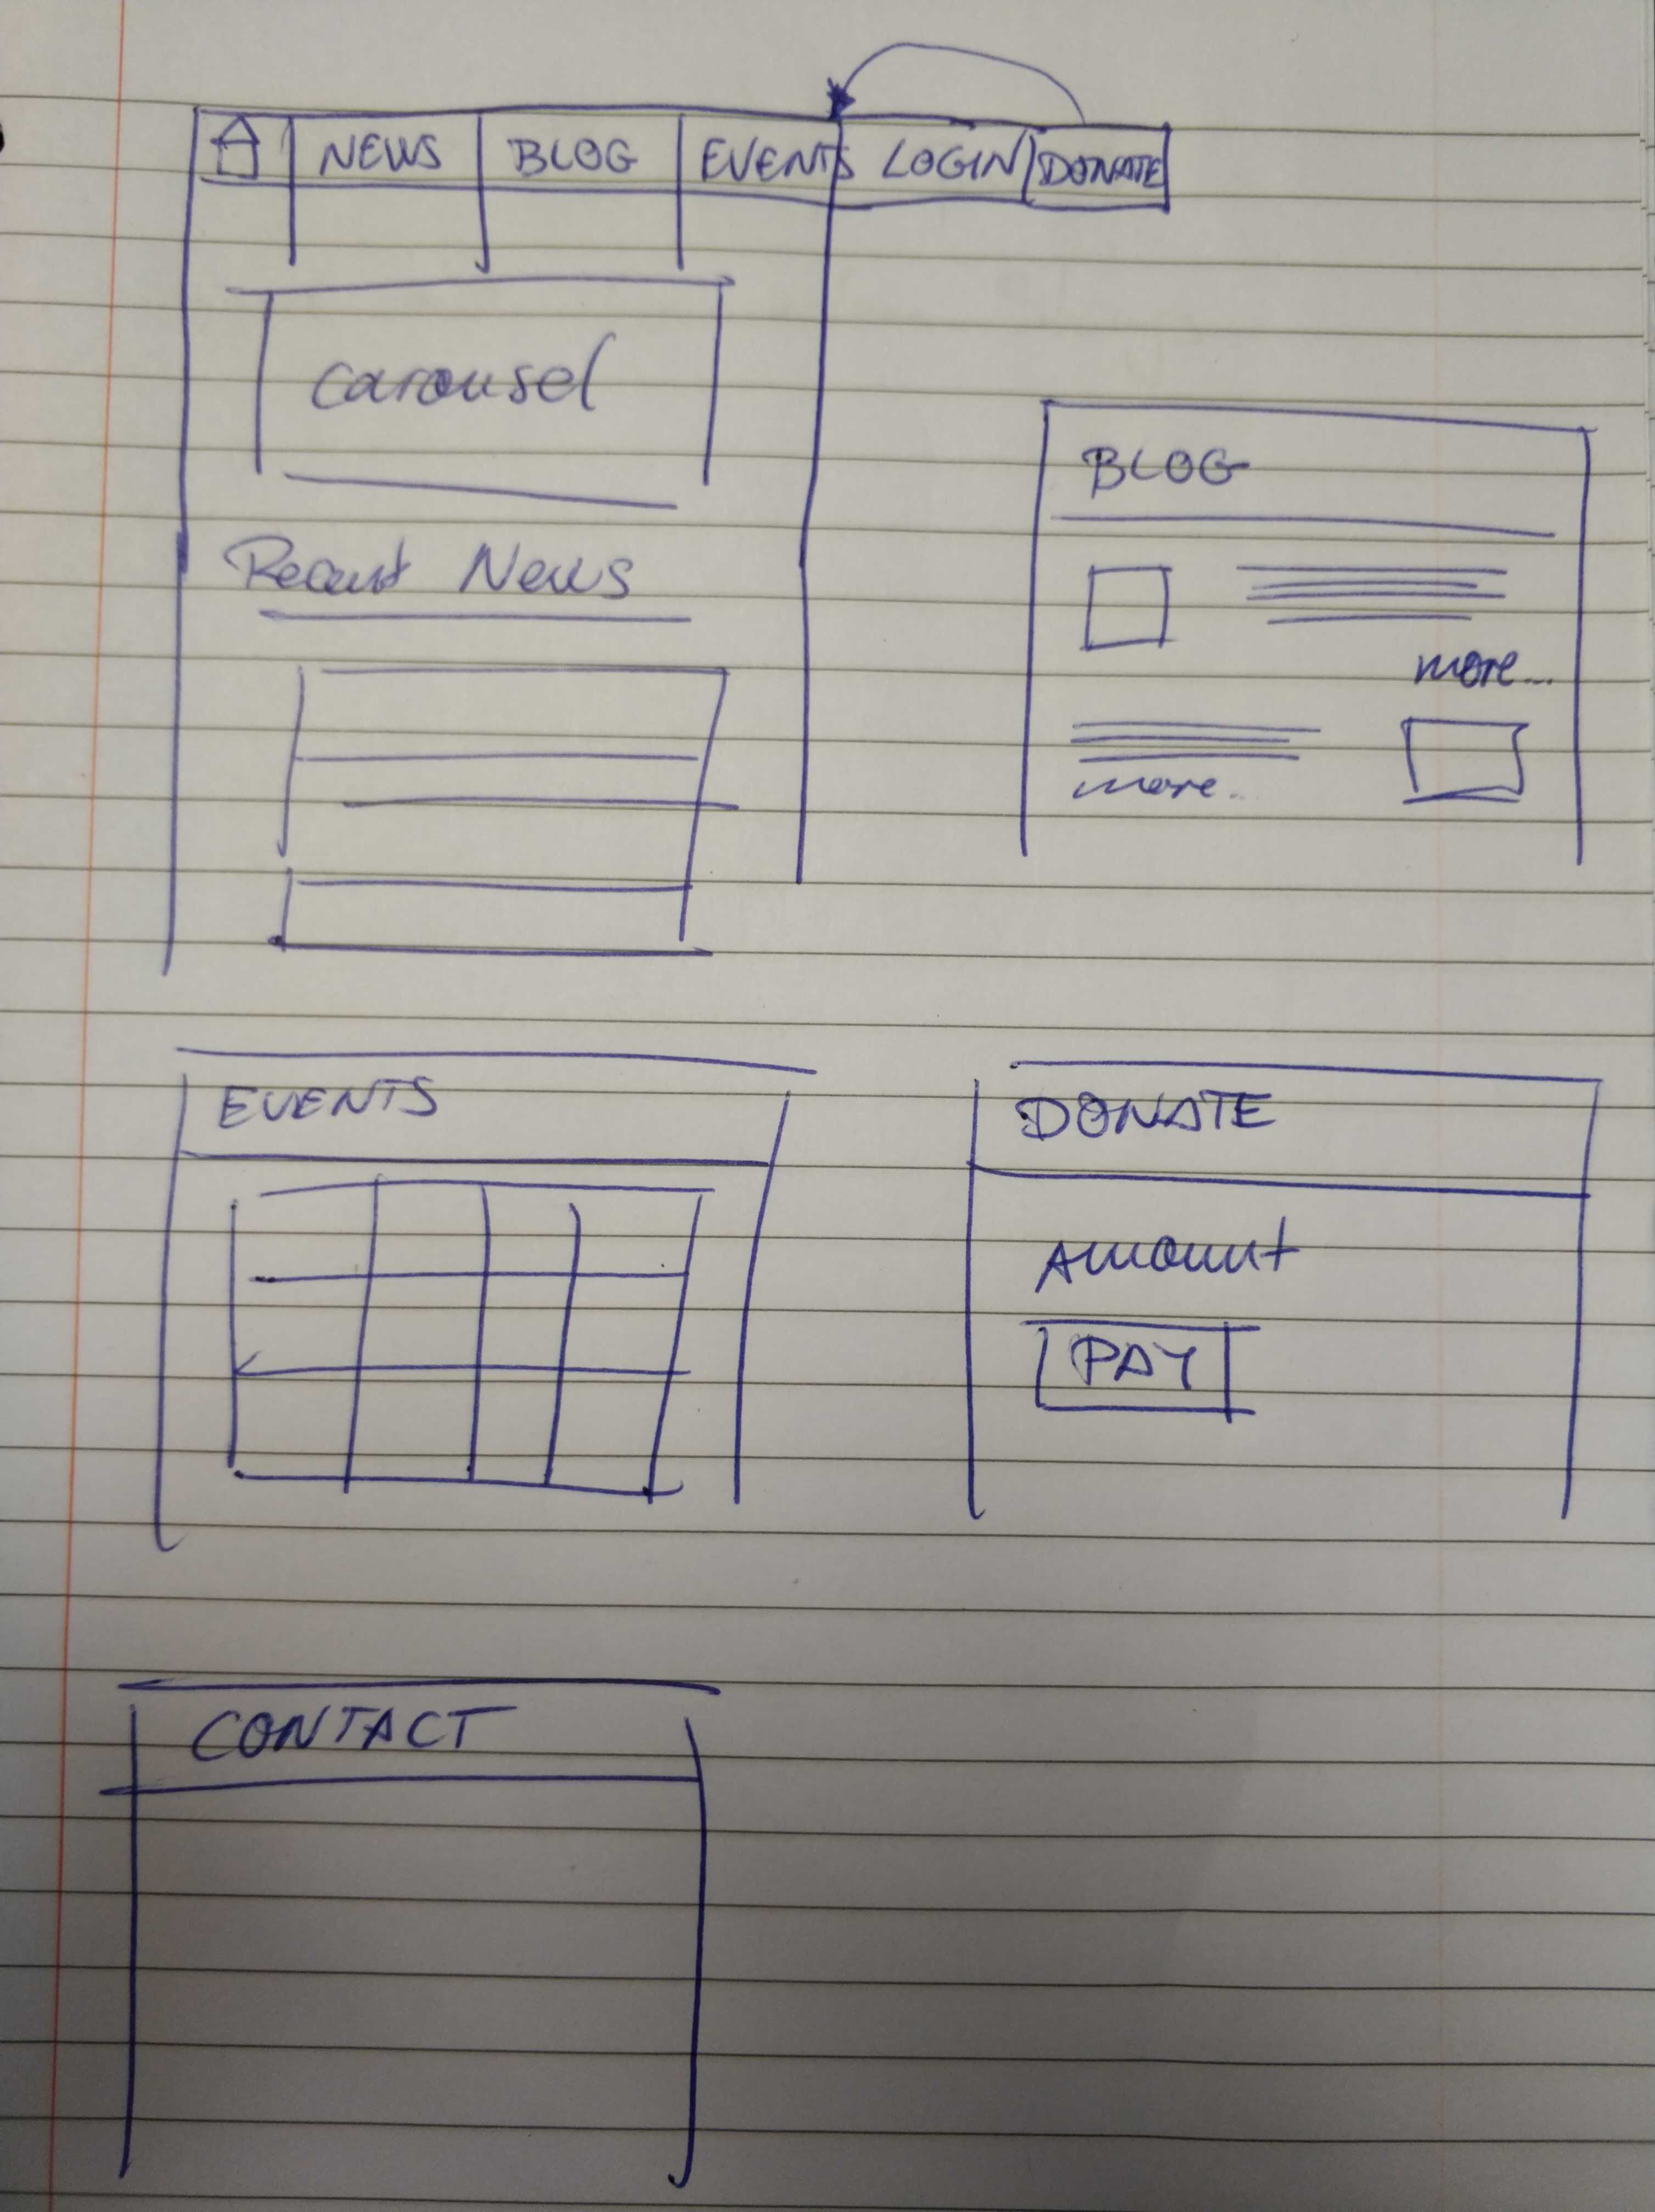 NEWS BLOG EVENTS LOGIN DONATE
carousel
Recent News
BLOG
more...
more..
EVENTS
DONATE
Amount
PAY
CONTACT